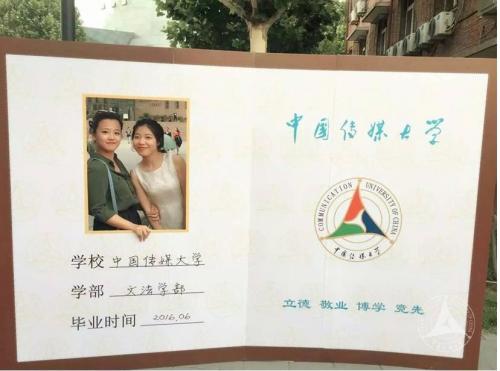 学校 中国传媒大学
学部 文法学部
毕业时间 2016.06
中国传媒大学
COMMUNICATION UNIVERSITY OF CHINA
中国传媒大学
立德 敬业 博学 竞先